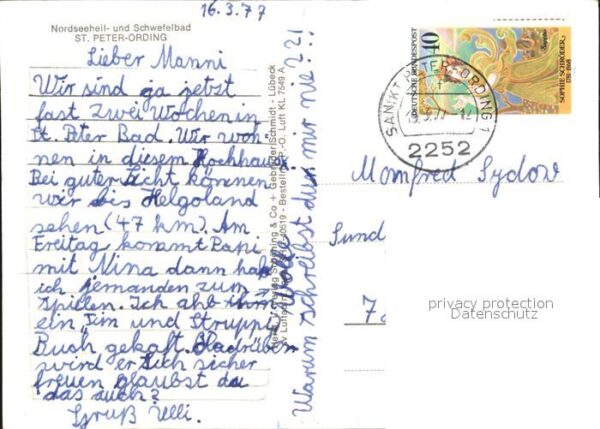 16.3.77
Nordseeheil- und Schwefelbad
ST. PETER-ORDING
Lieber Manni
Wir sind ja jetzt
fast zwei Wochen in
St. Peter Bad. Wir woh-
nen in diesem Hochhaus.
Bei guter Sicht können
wir bis Helgoland
sehen (47 km). Am
Freitag kommt Papi
mit Nina dann hab
ich jemanden zum
spielen. Ich ahb ihm
ein Tim und Struppi
Buch gekaft. Da drüben
wird er sich sicher
freuen glaubst du
das auch?
Gruß Ulli.
Warum schreibst du mir nie??!
Schöning & Co + Gebrüder Schmidt - Lübeck
Bestell
Luft KL 7549 A
DEUTSCHE BUNDESPOST
40
SOPHIE SCHRÖDER
1781-1868
SANKT PETER-ORDING 1
77
2252
Manfred Sydow
Sund
privacy protection
Datenschutz